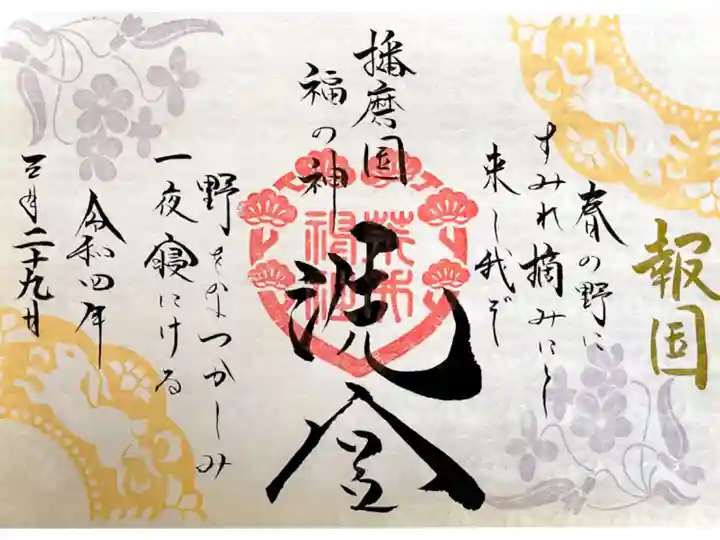 報国
春の野に
すみれ摘みにと
来し我ぞ
播磨国
福の神
荒井
神社
野をなつかしみ
一夜寝にける
令和四年
三月二十九日